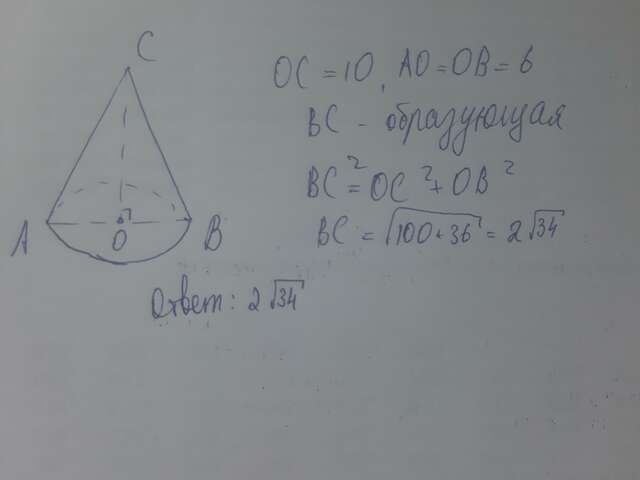 C
OC = 10, AO = OB = 6
BC - образующая
BC² = OC² + OB²
A O B
BC = √100+36 = 2√34
Ответ: 2√34